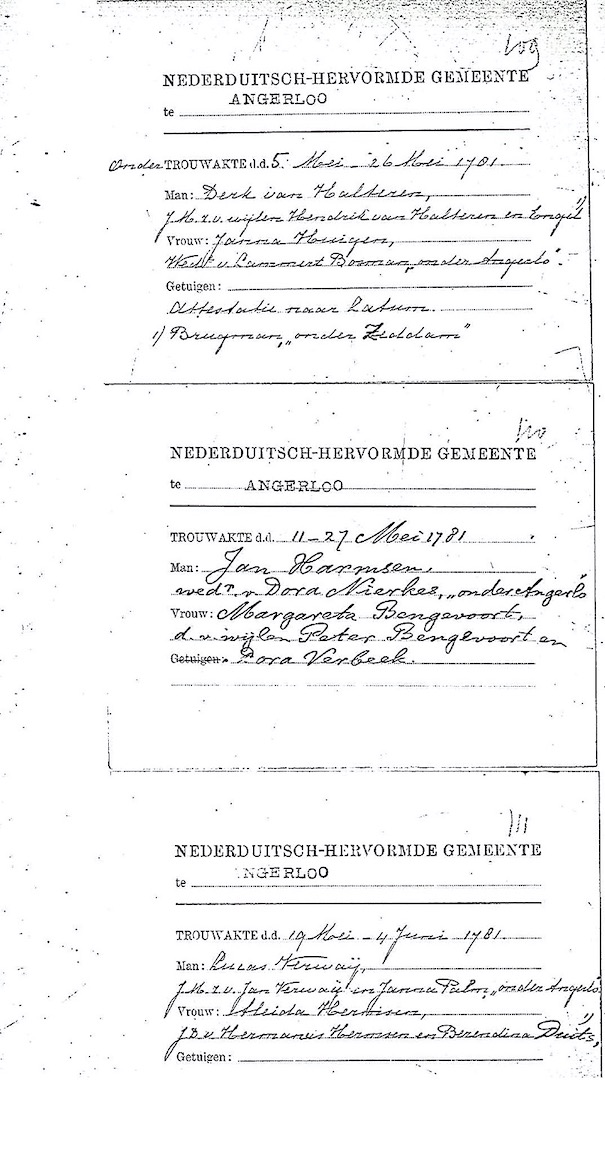 109
NEDERDUITSCH-HERVORMDE GEMEENTE
ANGERLOO
te
Onder TROUWAKTE d.d. 5. Mei - 26 Mei 1781.
Man: Derk van Halteren,
J.M. z.v. wijlen Hendrik van Halteren en Engel 1)
Vrouw: Janna Huigen,
Wed.e v. Lammert Bosman, "onder Angerlo".
Getuigen:
Attestatie naar Latum.
1) Brugman, "onder Zeddam"
110
NEDERDUITSCH-HERVORMDE GEMEENTE
te ANGERLOO
TROUWAKTE d.d. 11-27 Mei 1781
Man: Jan Harmsen,
wed.r v. Dora Nierkes, "onder Angerlo
Vrouw: Margareta Bengevoort,
d. v. wijlen Peter Bengevoort en
Getuigen: Dora Verbeek.
111
NEDERDUITSCH-HERVORMDE GEMEENTE
ANGERLOO
te
TROUWAKTE d.d. 19 Mei - 4 Juni 1781.
Man: Lucas Verwaij,
J.M. z.v. Jan Verwaij en Janna Palm, "onder Angerlo
Vrouw: Aleida Hermsen,
J.D. v. Hermanus Hermsen en Berendina Duits,
Getuigen: